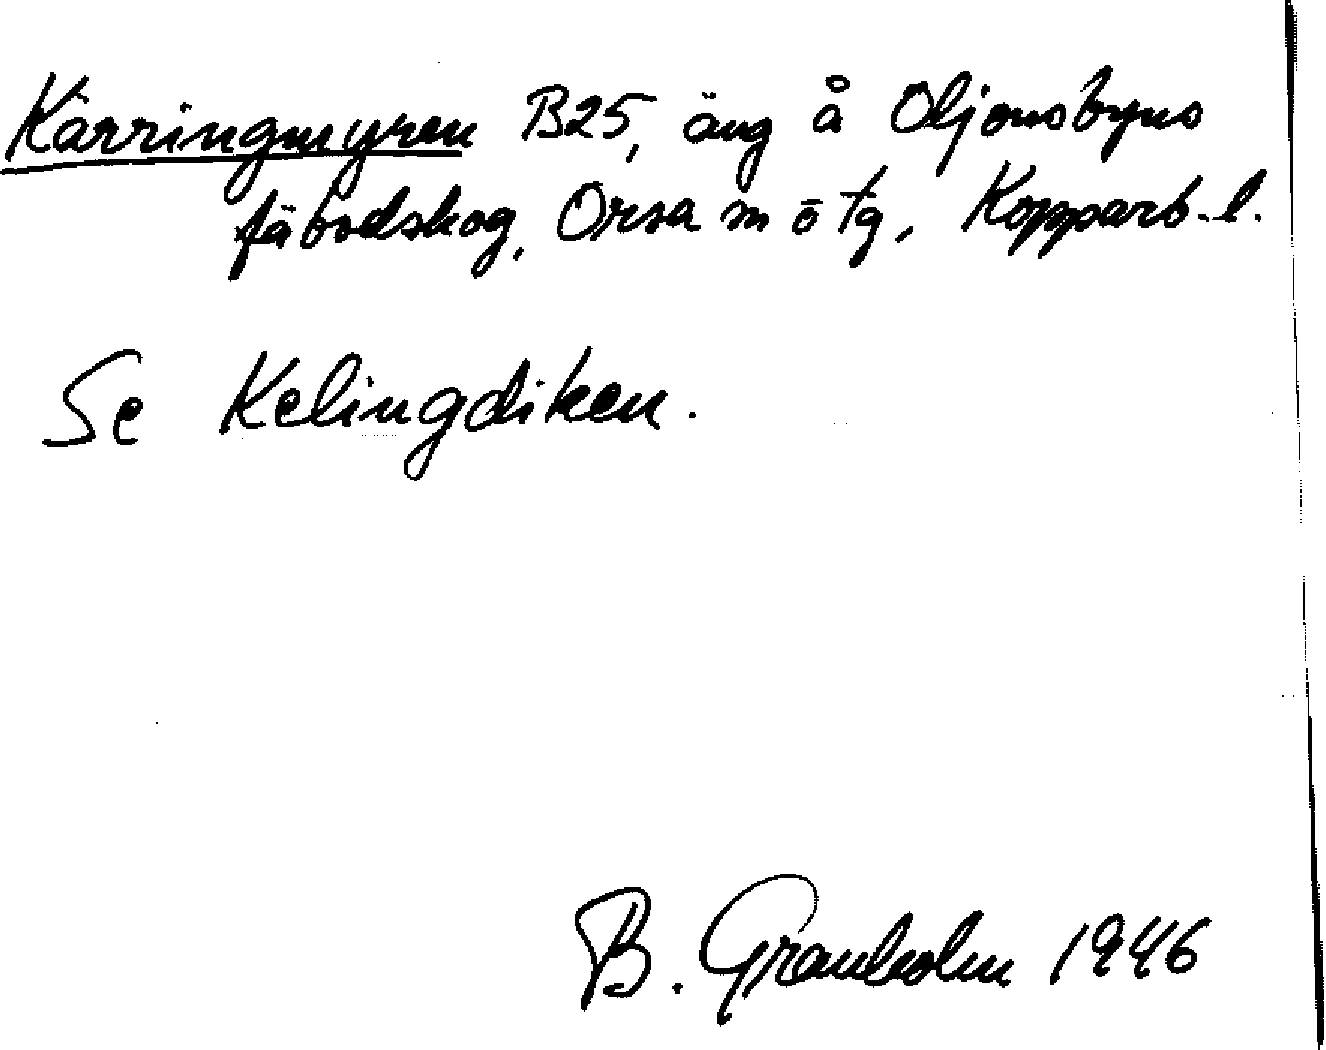 Kärringmyren B25, äng å Oljonsbyns
fäbodskog, Orsa sn o tg, Kopparb. l.
Se Kelingdiken.
B. Granholm 1946